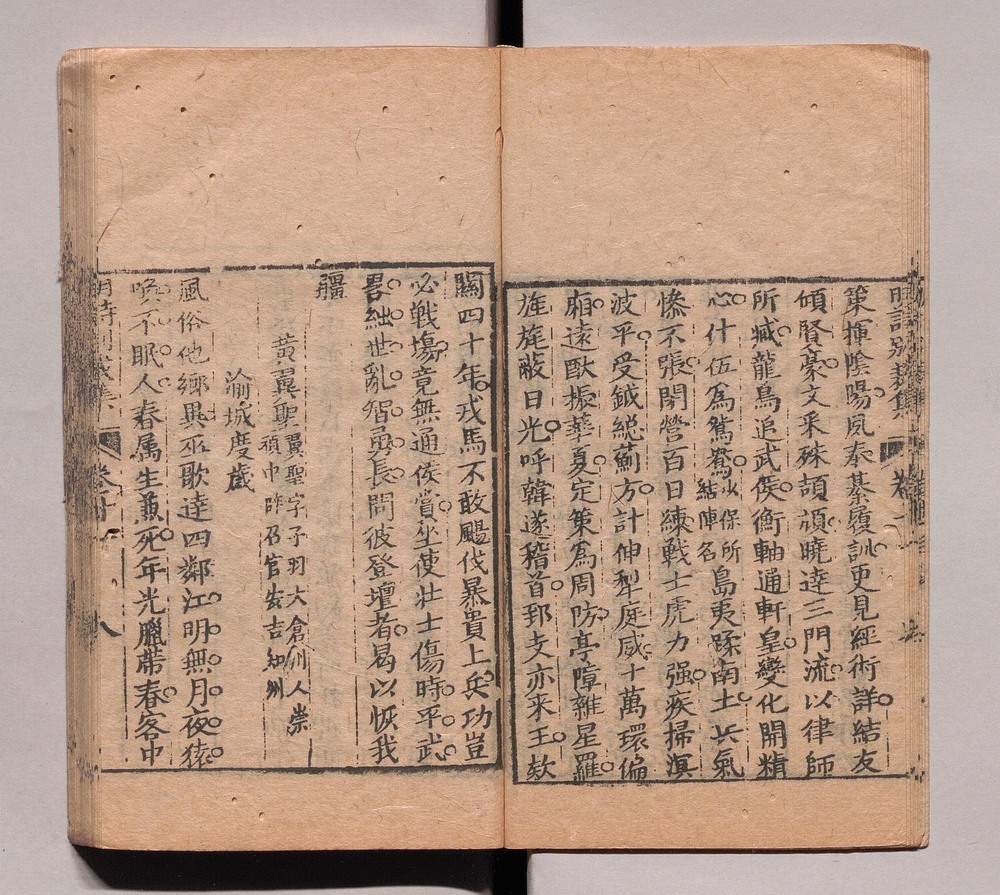 明詩別裁集
卷十
策揮陰陽夙泰綦履訓更見經術詳結友
傾賢豪文采殊頡頏曉達三門流以律師
所臧龍鳥追武侯衡軸通軒皇變化開精
心什伍爲鴛鴦火保所結陣名島夷蹂南土兵氣
慘不張開營百日練戰士虎力强疾掃溟
波平受鉞總薊方計伸犁庭威十萬環偏
廂遠猷振華夏定策爲周防亭障雜星羅
旌旄蔽日光呼韓遂稽首郅支亦來王欸
關四十年戎馬不敢颺伐暴貴上兵功豈
必戰場竟無通侯賞坐使壯士傷時平武
畧絀世亂智勇長問彼登壇者曷以恢我
疆
黄翼聖翼聖字子羽大倉州人崇
禎中辟召官安吉知州
渝城度歲
風俗他鄉異巫歌達四鄰江明無月夜猿
喚不眠人春属生兼死年光臘帶春客中
明詩別裁集
卷十
八